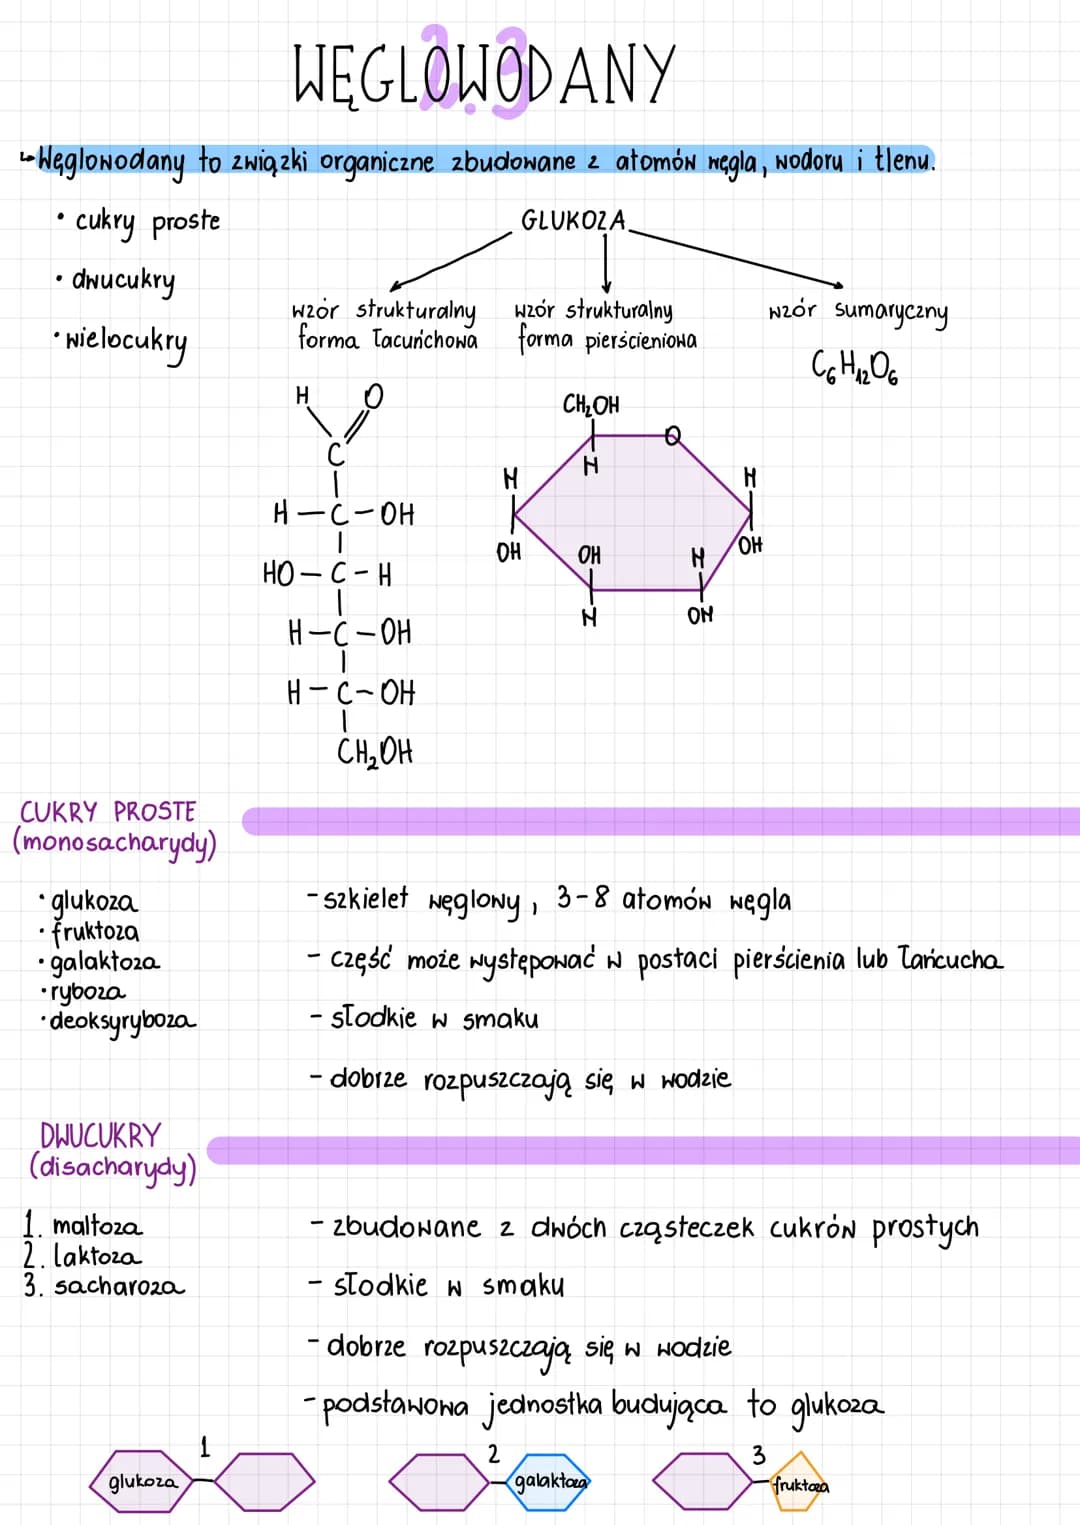 2.3
WĘGLOWODANY
↳Węglowodany to związki organiczne zbudowane z atomów węgla, wodoru i tlenu.
• cukry proste
• dwucukry
• wielocukry
GLUKOZA
wzór strukturalny
forma łacuńchowa
wzór strukturalny
forma pierścieniowa
wzór sumaryczny
C₆H₁₂O₆
H O
C
H — C — OH
HO — C — H
H — C — OH
H — C — OH
CH₂OH
CH₂OH
O
H
H
H
OH
OH
H
OH
H
OH
CUKRY PROSTE
(monosacharydy)
• glukoza
• fruktoza
• galaktoza
• ryboza
• deoksyryboza
- szkielet węglowy, 3-8 atomów węgla
- część może występować w postaci pierścienia lub łańcucha
- słodkie w smaku
- dobrze rozpuszczają się w wodzie
DWUCUKRY
(disacharydy)
1. maltoza
2. laktoza
3. sacharoza
- zbudowane z dwóch cząsteczek cukrów prostych
- słodkie w smaku
- dobrze rozpuszczają się w wodzie
- podstawowa jednostka budująca to glukoza
1
glukoza
2
galaktoza
3
fruktoza